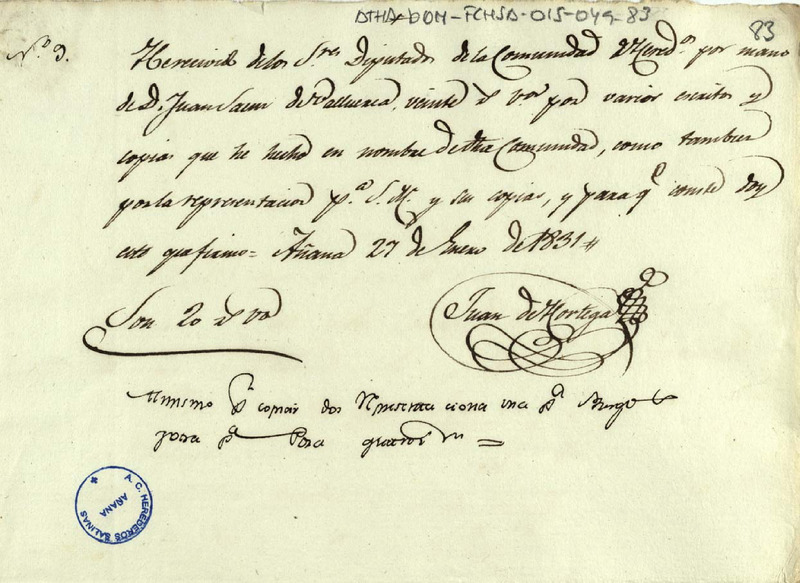 ATHA-DOM-FCHSA-015-049-83
83
Nº 9.
He recivido de los Sres Diputados de la Comunidad de Heredos por mano
de Dn Juan Saenz de Valluerca, veinte rs von por varios escritos y
copias que he hecho en nombre de dha Comunidad, como tambien
por la representacion pa S. M. y sus copias, y para qe conste doy
esto que firmo = Añana 27 de Enero de 1831 //
Son 20 rs von
Juan de Hortega
pr copiar dos una pa Burgos
pa
A. C. HEREDEROS SALINAS
AÑANA